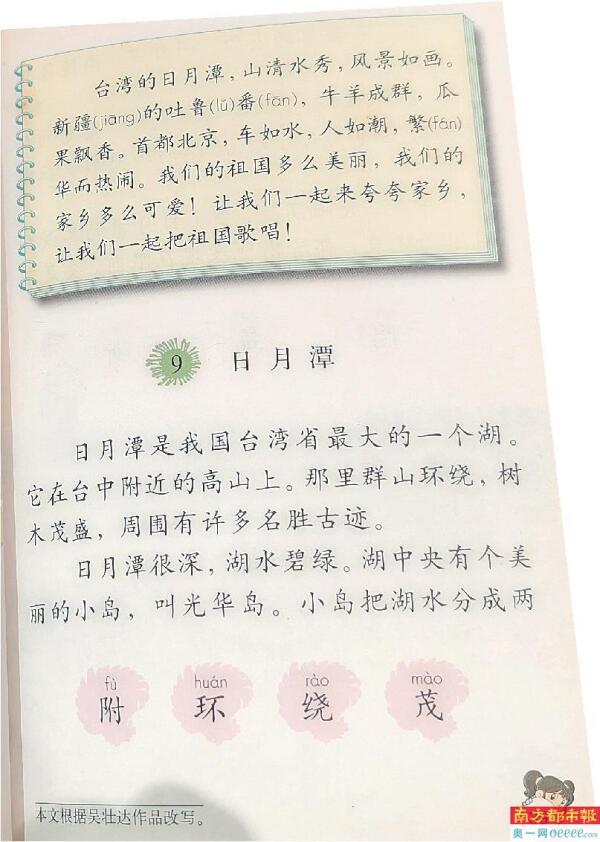 台湾的日月潭，山清水秀，风景如画。
新疆(jiāng)的吐鲁(lǔ)番(fān)，牛羊成群，瓜
果飘香。首都北京，车如水，人如潮，繁(fán)
华而热闹。我们的祖国多么美丽，我们的
家乡多么可爱！让我们一起来夸夸家乡，
让我们一起把祖国歌唱！
9 日月潭
日月潭是我国台湾省最大的一个湖。
它在台中附近的高山上。那里群山环绕，树
木茂盛，周围有许多名胜古迹。
日月潭很深，湖水碧绿。湖中央有个美
丽的小岛，叫光华岛。小岛把湖水分成两
fù huán rào mào
附 环 绕 茂
本文根据吴壮达作品改写。
南方都市報
奥一网oeeee.com